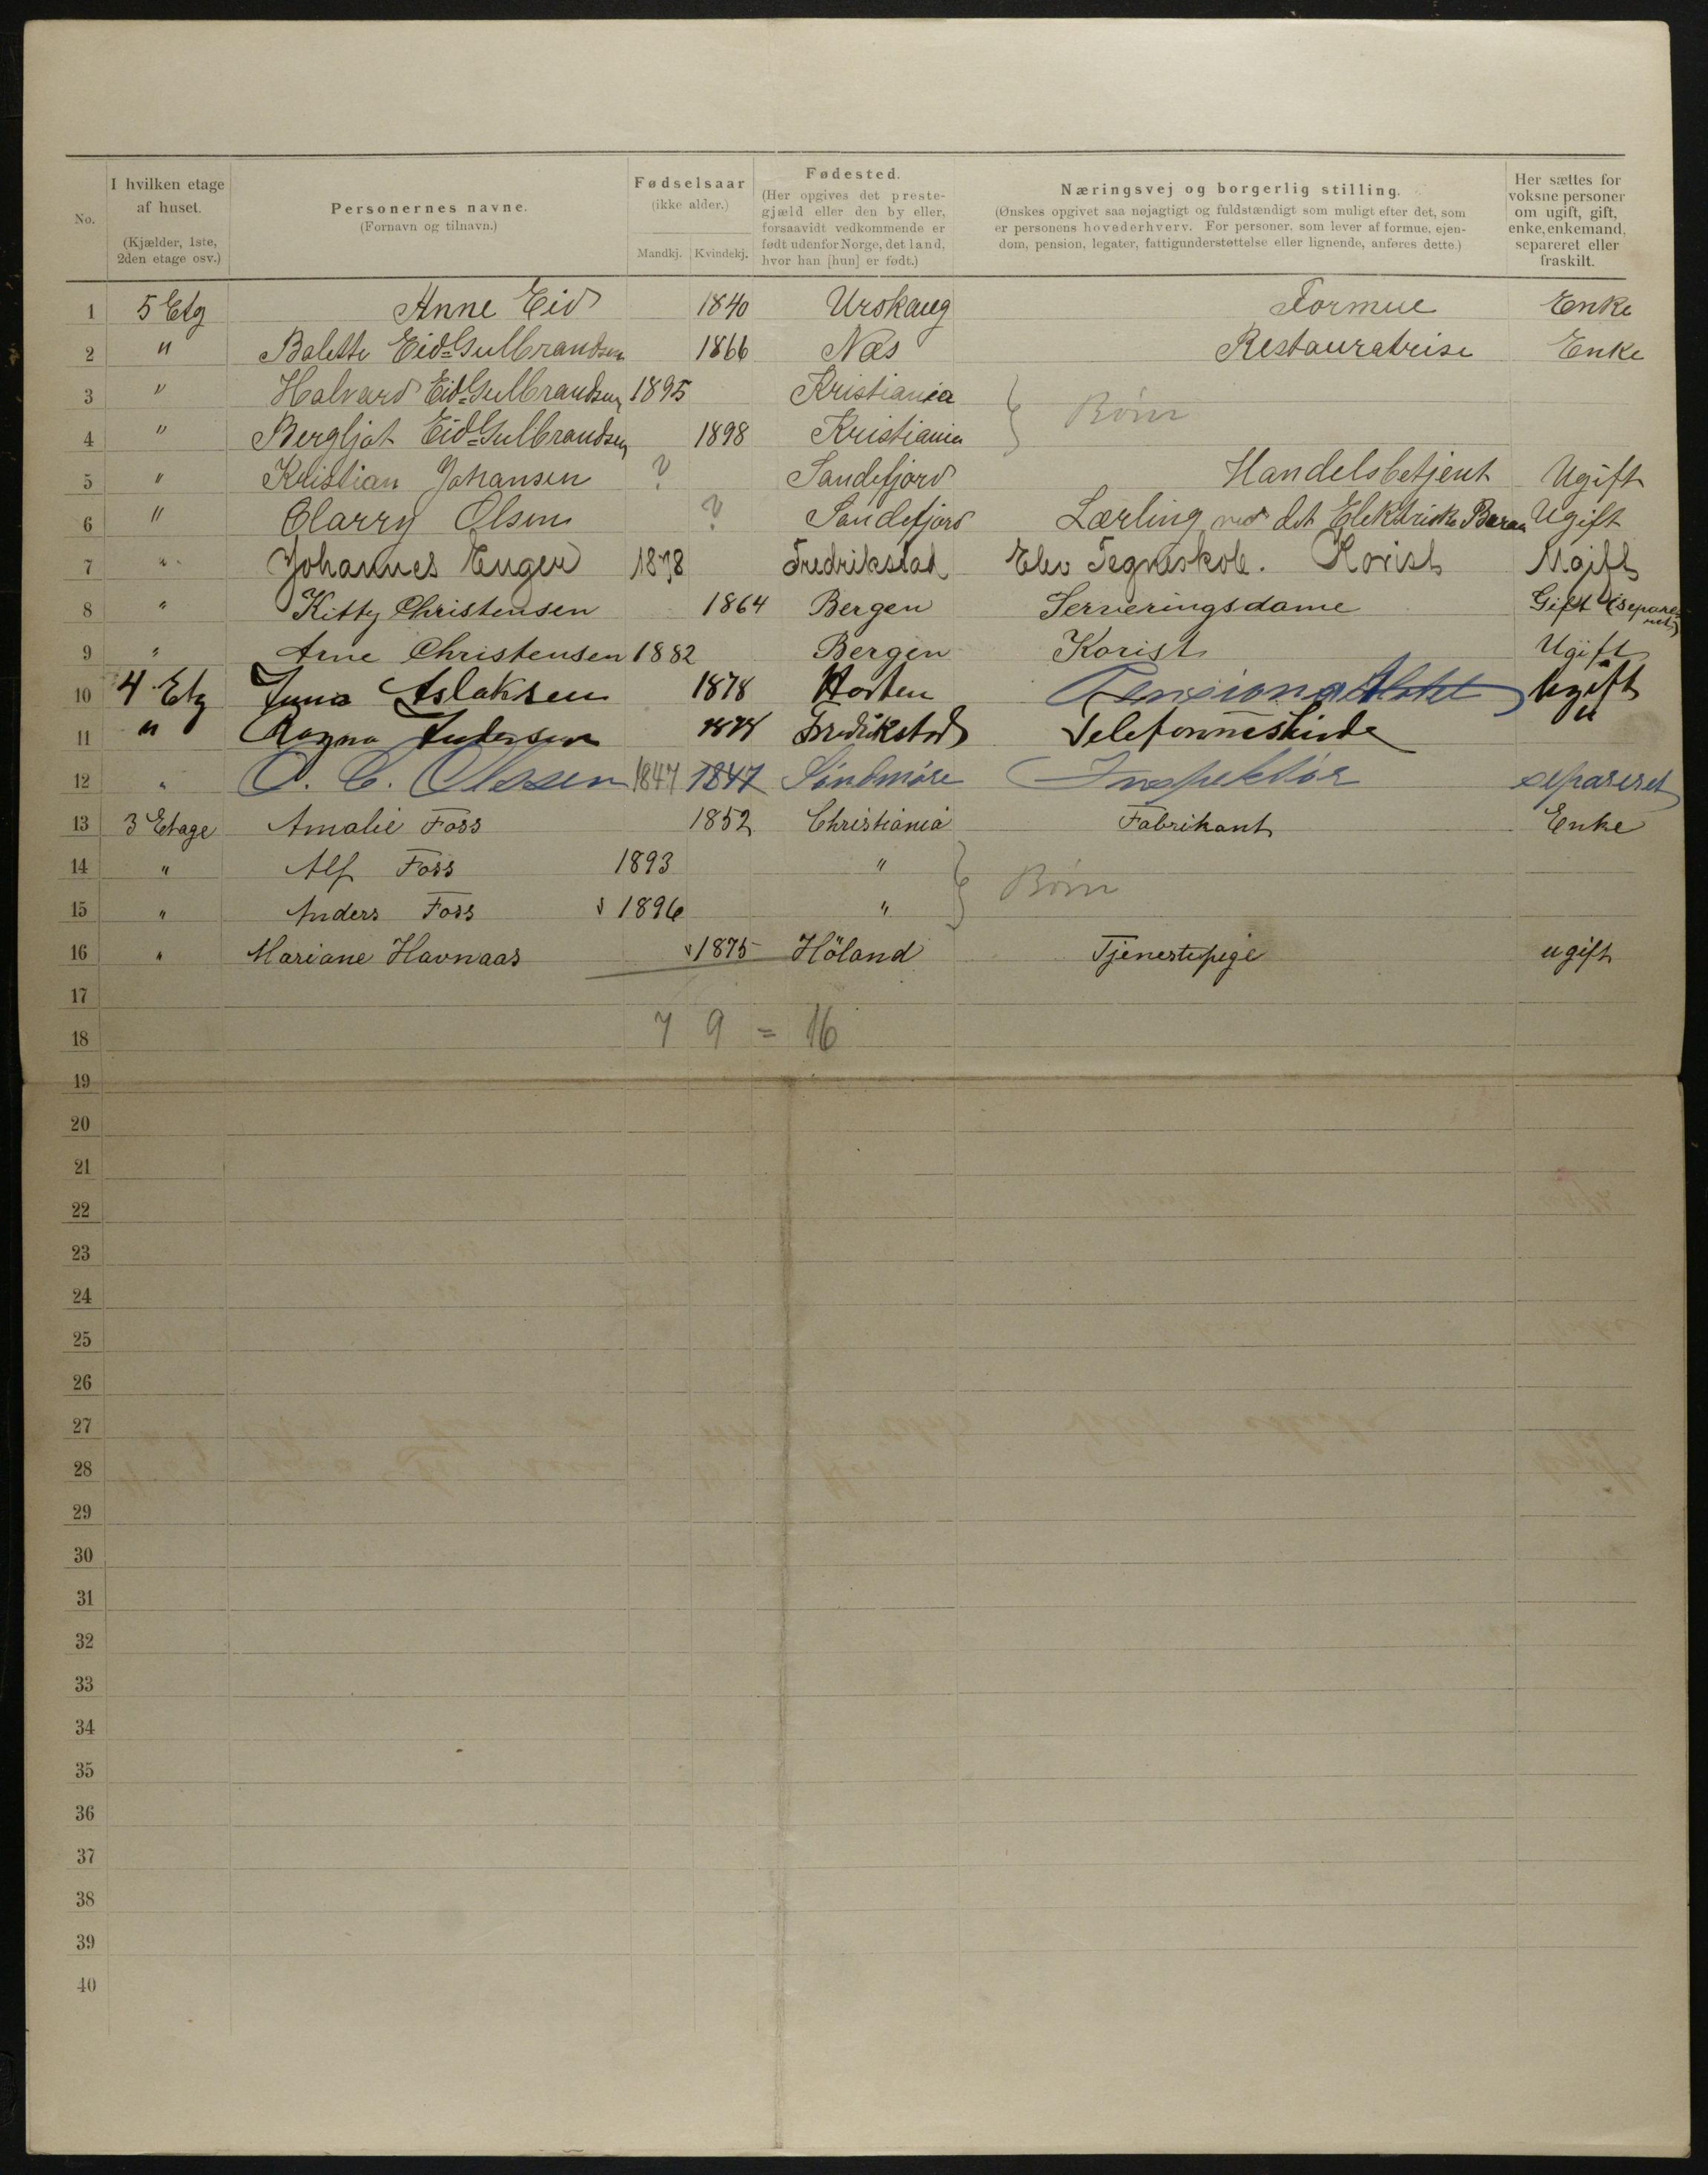 No.
I hvilken etage af huset. (Kjælder, 1ste, 2den etage osv.)
Personernes navne. (Fornavn og tilnavn.)
Fødselsaar (ikke alder.) Mandkj. Kvindekj.
Fødested. (Her opgives det prestegjæld eller den by eller, forsaavidt vedkommende er født udenfor Norge, det land, hvor han [hun] er født.)
Næringsvej og borgerlig stilling. (Ønskes opgivet saa nøjagtigt og fuldstændigt som muligt efter det, som er personens hovederhverv. For personer, som lever af formue, ejendom, pension, legater, fattigunderstøttelse eller lignende, anføres dette.)
Her sættes for voksne personer om ugift, gift, enke, enkemand, separeret eller fraskilt.
1 5 Etg Anne Eid 1840 Urskaug Formue Enke
2 " Balette Eid=Gulbrandsen 1866 Næs Restauratrise Enke
3 " Halvard Eid=Gulbrandsen 1895 Kristiania } Børn
4 " Bergljot Eid=Gulbrandsen 1898 Kristiania
5 " Kristian Johansen ? Sandefjord Handelsbetjent Ugift
6 " Olsen ? Sandefjord Lærling ved det Elektriske Ugift
7 " Johannes Enger 1878 Fredrikstad Elev Tegneskole. Korist Ugift
8 " Kitty Christensen 1864 Bergen Serveringsdame Gift (separeret)
9 " Arne Christensen 1882 Bergen Korist Ugift
10 4 Etg Aslaksen 1878 Horten Ugift
11 " Ragna Andersen 1874 Fredrikstad Telefonnistinde "
12 " O. C. Olesen 1847 1847 Søndmøre Inspektør separeret
13 3 Etage Amalie Foss 1852 Christiania Fabrikant Enke
14 " Alf Foss 1893 " } Børn
15 " Anders Foss 1896 "
16 " Mariane Havnaas 1875 Höland Tjenestepige ugift
17
18 7 9 = 16
19
20
21
22
23
24
25
26
27
28
29
30
31
32
33
34
35
36
37
38
39
40